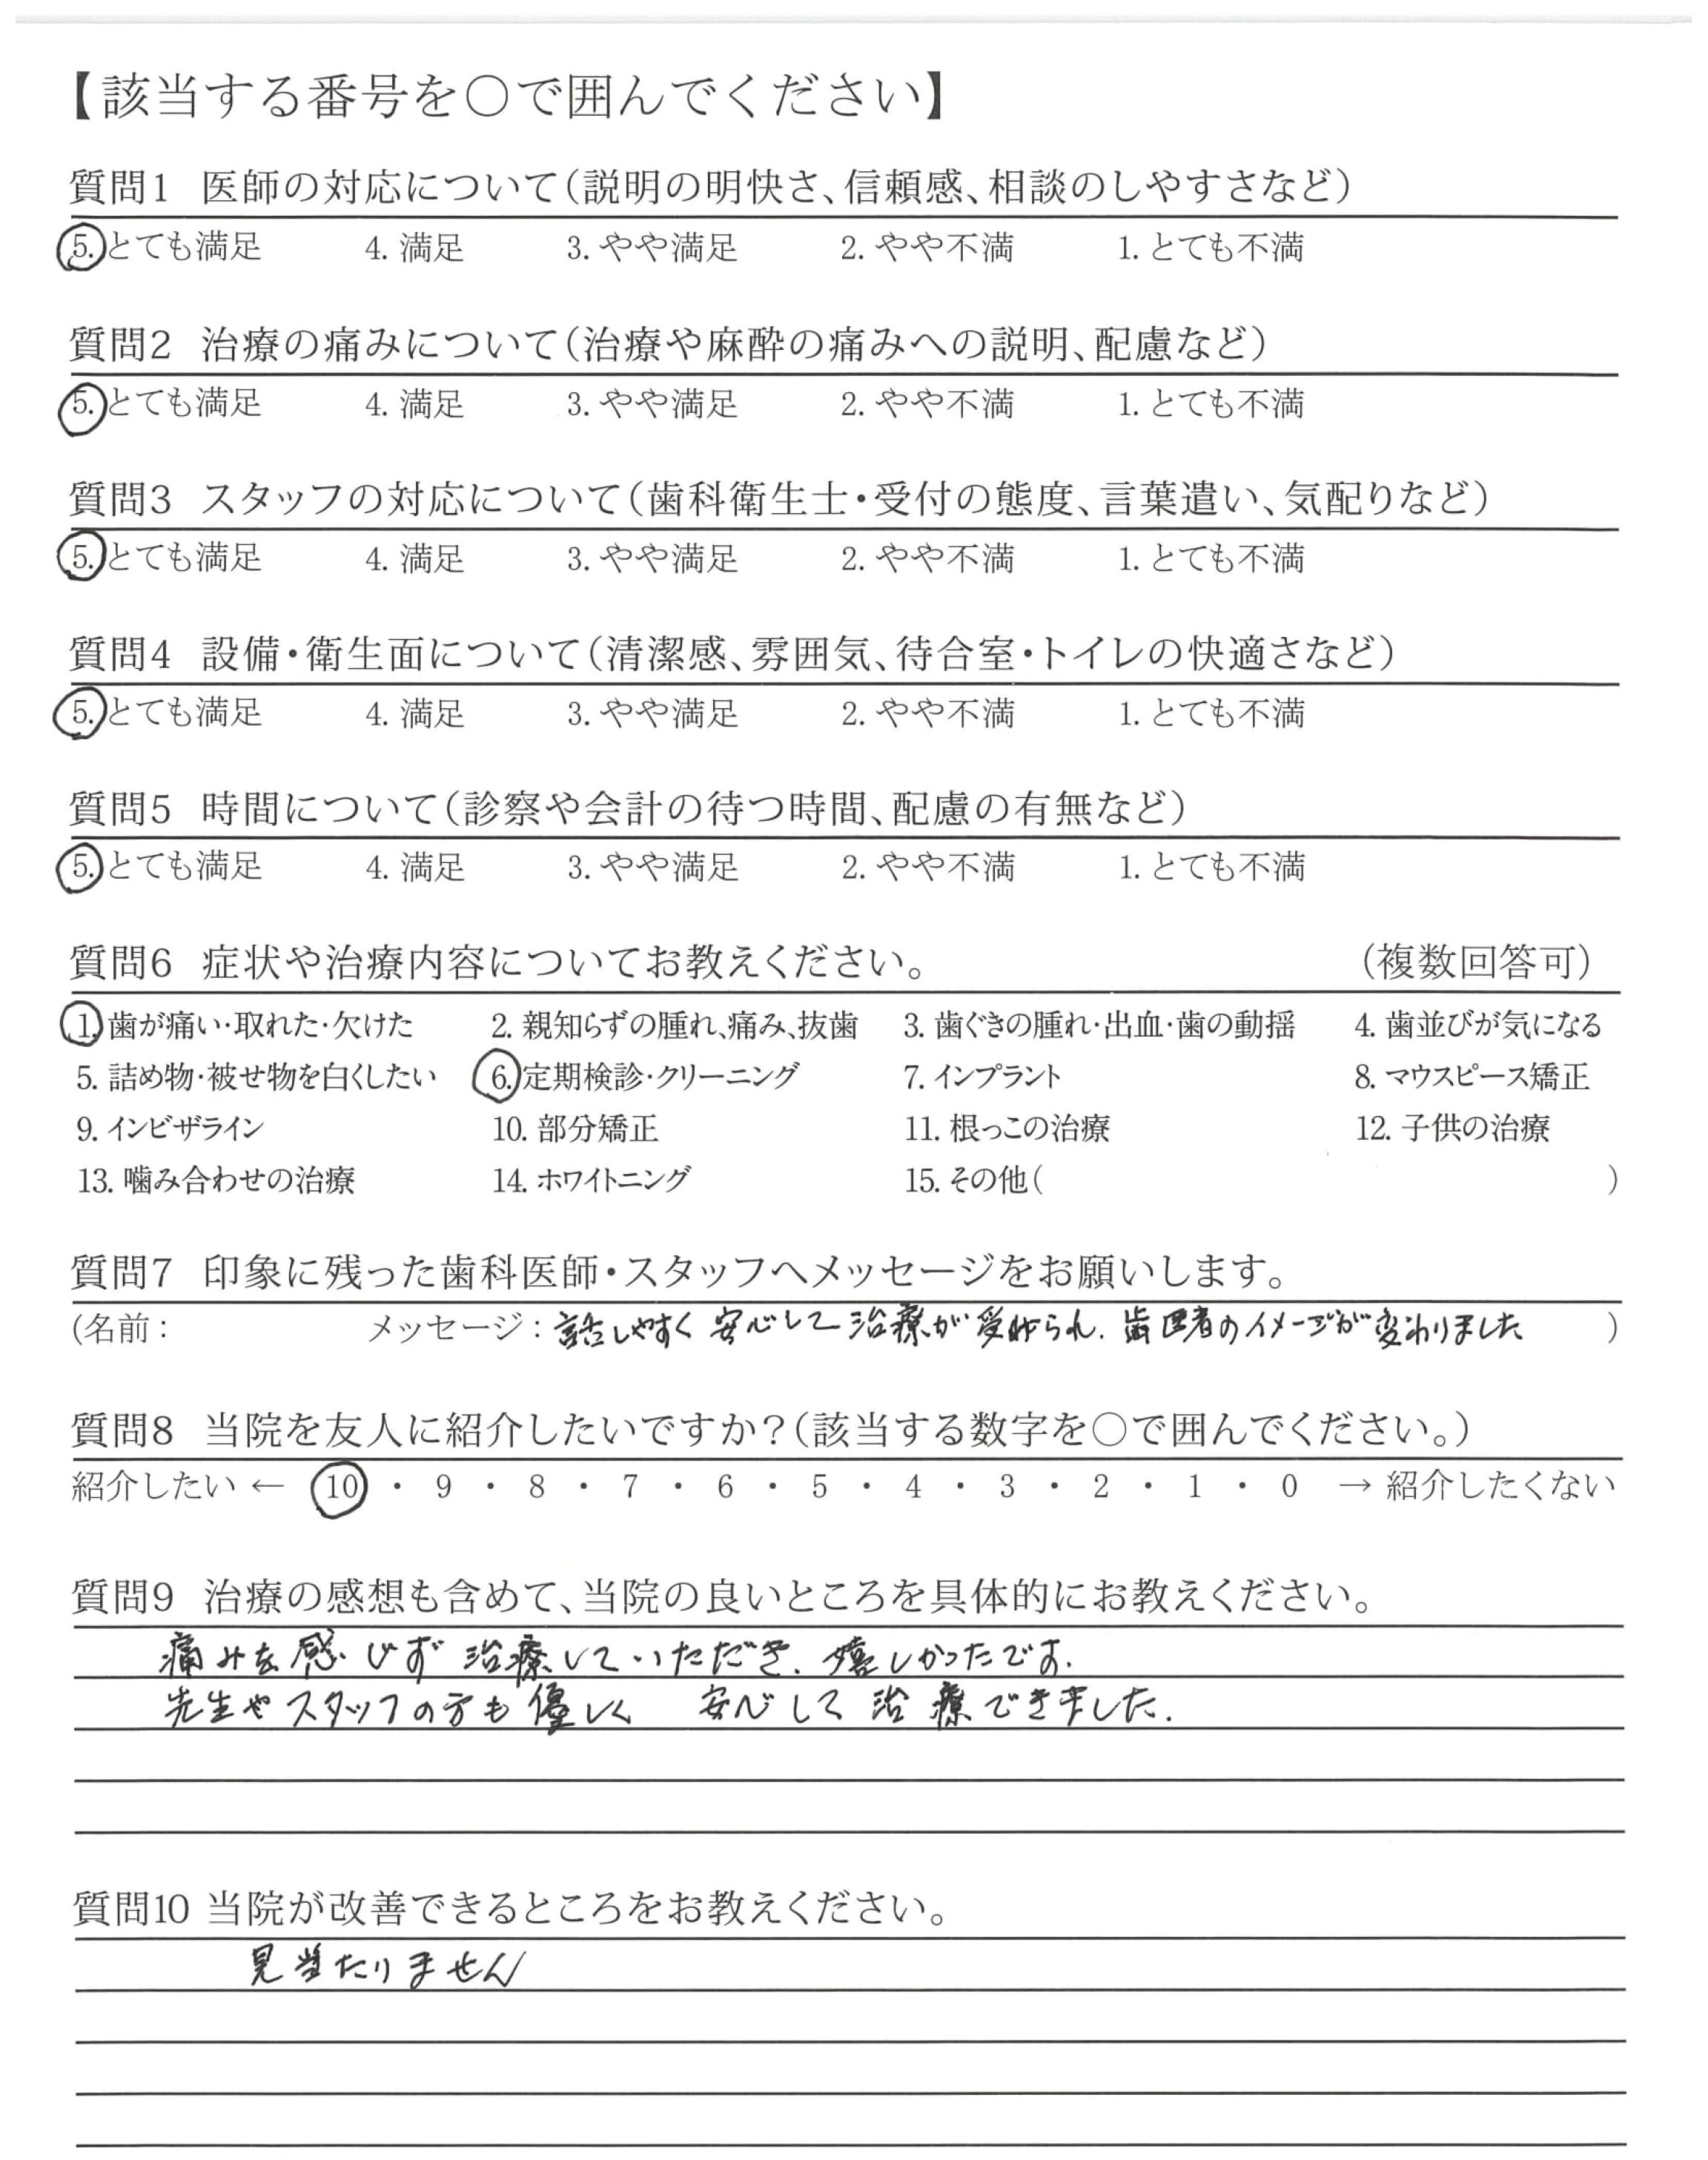 【該当する番号を○で囲んでください】
質問1 医師の対応について(説明の明快さ、信頼感、相談のしやすさなど)
5. とても満足 4. 満足 3. やや満足 2. やや不満 1. とても不満
質問2 治療の痛みについて(治療や麻酔の痛みへの説明、配慮など)
5. とても満足 4. 満足 3. やや満足 2. やや不満 1. とても不満
質問3 スタッフの対応について(歯科衛生士・受付の態度、言葉遣い、気配りなど)
5. とても満足 4. 満足 3. やや満足 2. やや不満 1. とても不満
質問4 設備・衛生面について(清潔感、雰囲気、待合室・トイレの快適さなど)
5. とても満足 4. 満足 3. やや満足 2. やや不満 1. とても不満
質問5 時間について(診察や会計の待つ時間、配慮の有無など)
5. とても満足 4. 満足 3. やや満足 2. やや不満 1. とても不満
質問6 症状や治療内容についてお教えください。 (複数回答可)
1. 歯が痛い・取れた・欠けた 2. 親知らずの腫れ、痛み、抜歯 3. 歯ぐきの腫れ・出血・歯の動揺 4. 歯並びが気になる
5. 詰め物・被せ物を白くしたい 6. 定期検診・クリーニング 7. インプラント 8. マウスピース矯正
9. インビザライン 10. 部分矯正 11. 根っこの治療 12. 子供の治療
13. 噛み合わせの治療 14. ホワイトニング 15. その他( )
質問7 印象に残った歯科医師・スタッフへメッセージをお願いします。
(名前: メッセージ: 話しやすく 安心して 治療が 受けられ、歯医者のイメージが変わりました )
質問8 当院を友人に紹介したいですか?(該当する数字を○で囲んでください。)
紹介したい ← 10 ・ 9 ・ 8 ・ 7 ・ 6 ・ 5 ・ 4 ・ 3 ・ 2 ・ 1 ・ 0 → 紹介したくない
質問9 治療の感想も含めて、当院の良いところを具体的にお教えください。
痛みを感じず 治療していただき、嬉しかったです.
先生やスタッフの方も優しく 安心して治療できました.
質問10 当院が改善できるところをお教えください。
見当たりません